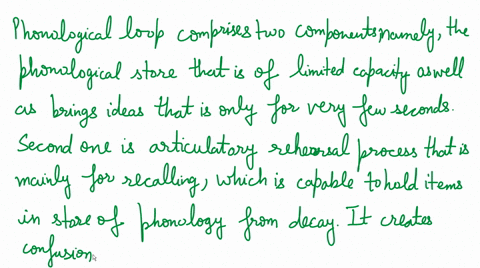 Phonological loop comprises two components, namely, the
phonological store that is of limited capacity as well
as brings ideas that is only for very few seconds.
Second one is articulatary rehersal process that is
mainly for recalling, which is capable to hold items
in store of phonology from decay. It creates
confusion